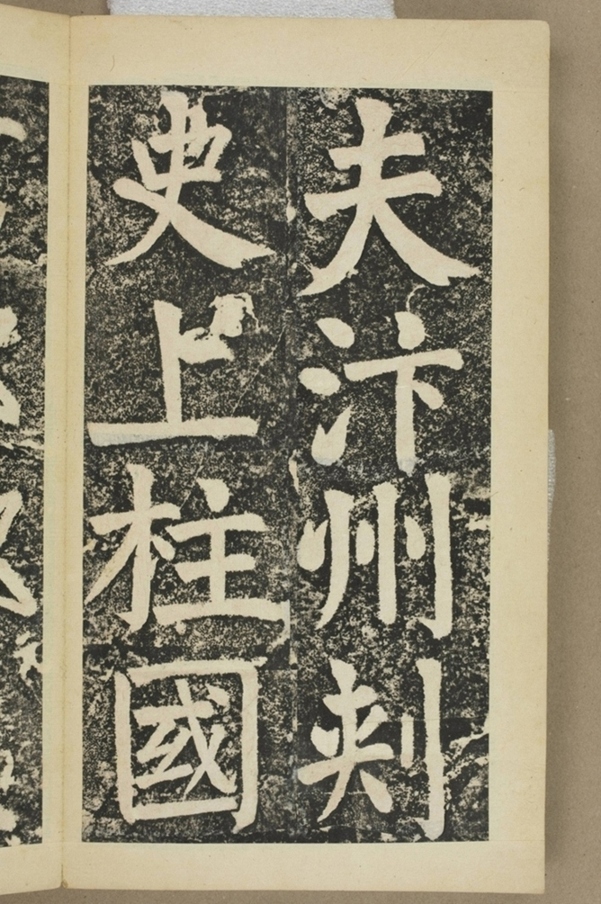 夫汴州刺
史上柱國